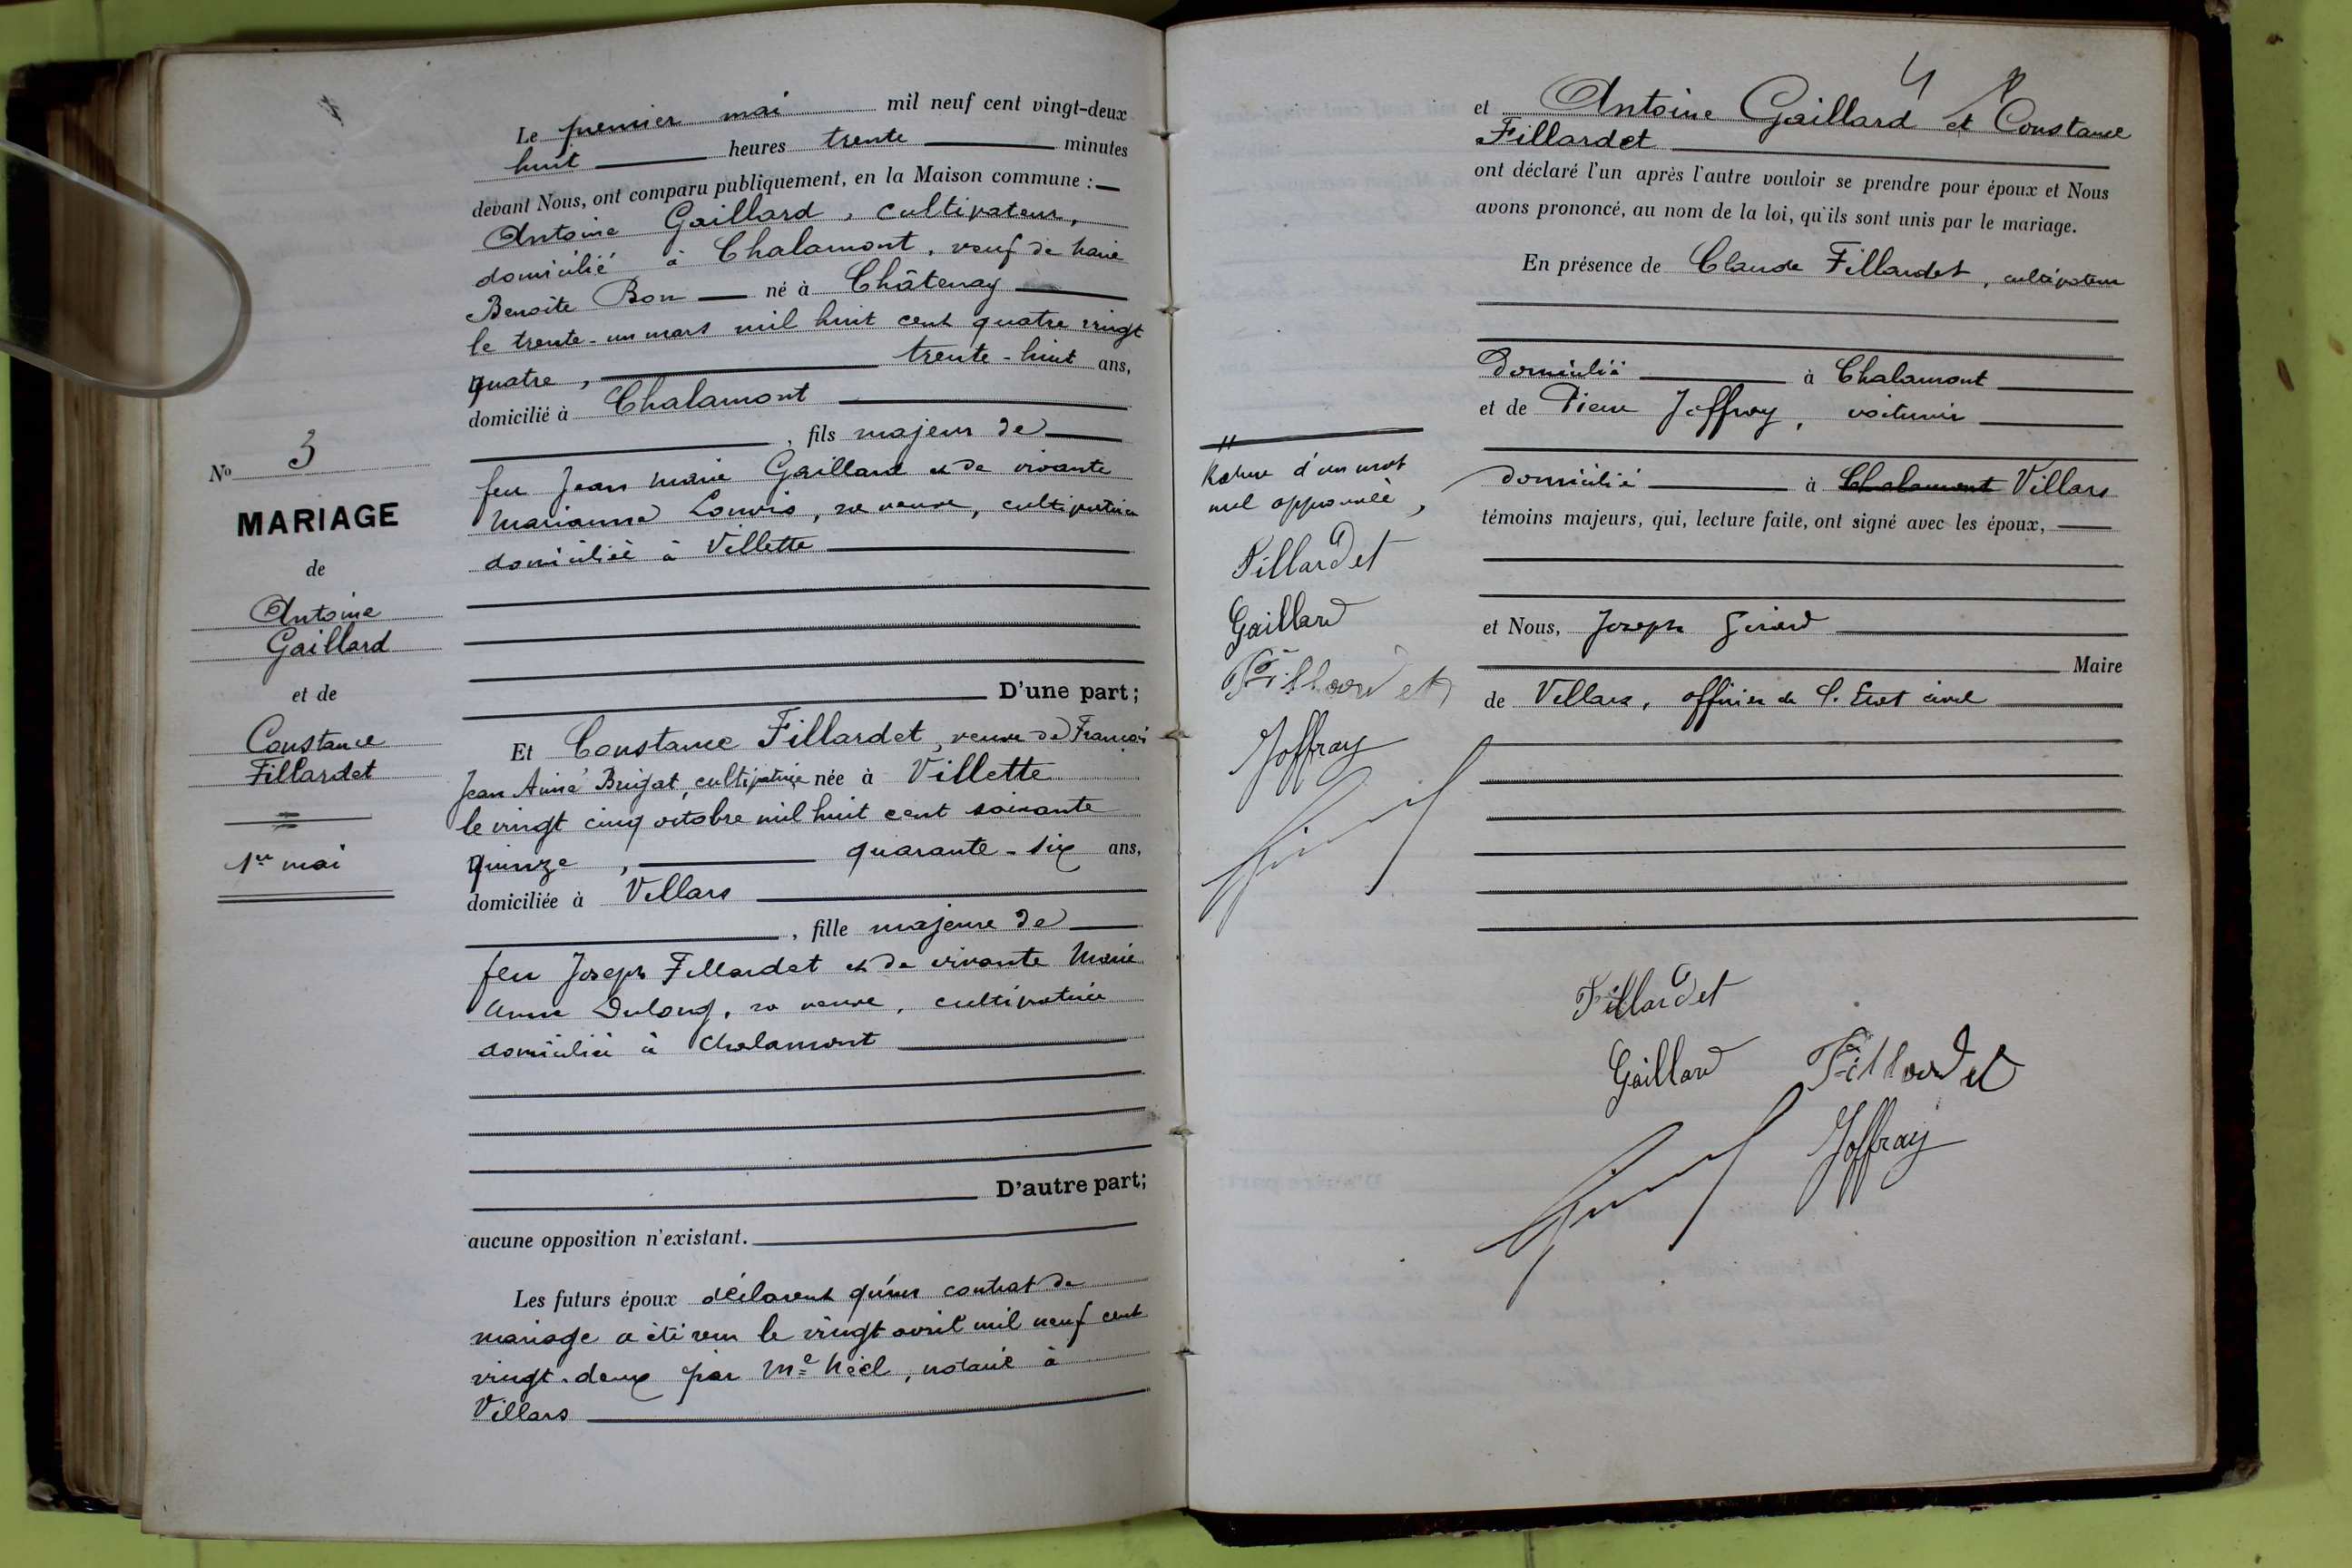 N° 3
MARIAGE
de
Antoine
Gaillard
et de
Constance
Fillardet
1er mai
Le premier mai mil neuf cent vingt-deux
huit heures trente minutes
devant Nous, ont comparu publiquement, en la Maison commune :
Antoine Gaillard, cultivateur,
domicilié à Chalamont, veuf de Marie
Benoite Bon né à Châtenay
le trente-un mars mil huit cent quatre vingt
quatre, trente-huit ans,
domicilié à Chalamont
, fils majeur de
feu Jean Marie Gaillard et de vivante
Marianne, sa veuve, cultivatrice
domiciliée à Villette
D'une part;
Et Constance Fillardet, veuve de François
Jean Aimé, cultivatrice née à Villette
le vingt cinq octobre mil huit cent soixante
quinze, quarante-six ans,
domiciliée à Villars
, fille majeure de
feu Joseph Fillardet et de vivante Marie
Anne, sa veuve, cultivatrice
domiciliée à Chalamont
D'autre part;
aucune opposition n'existant.
Les futurs époux déclarent qu'un contrat de
mariage a été reçu le vingt avril mil neuf cent
vingt-deux par Me, notaire à
Villars
4
et Antoine Gaillard et Constance
Fillardet
ont déclaré l'un après l'autre vouloir se prendre pour époux et Nous
avons prononcé, au nom de la loi, qu'ils sont unis par le mariage.
En présence de Claude Fillardet, cultivateur
domicilié à Chalamont
et de Pierre Joffray, voiturier
domicilié à Chalamont Villars
témoins majeurs, qui, lecture faite, ont signé avec les époux,
et Nous, Joseph Girard
Maire
de Villars, officier de l'Etat civil
d'un mot
nul approuvée,
Fillardet
Gaillard
Fillardet
Joffray
Fillardet
Gaillard Fillardet
Joffray